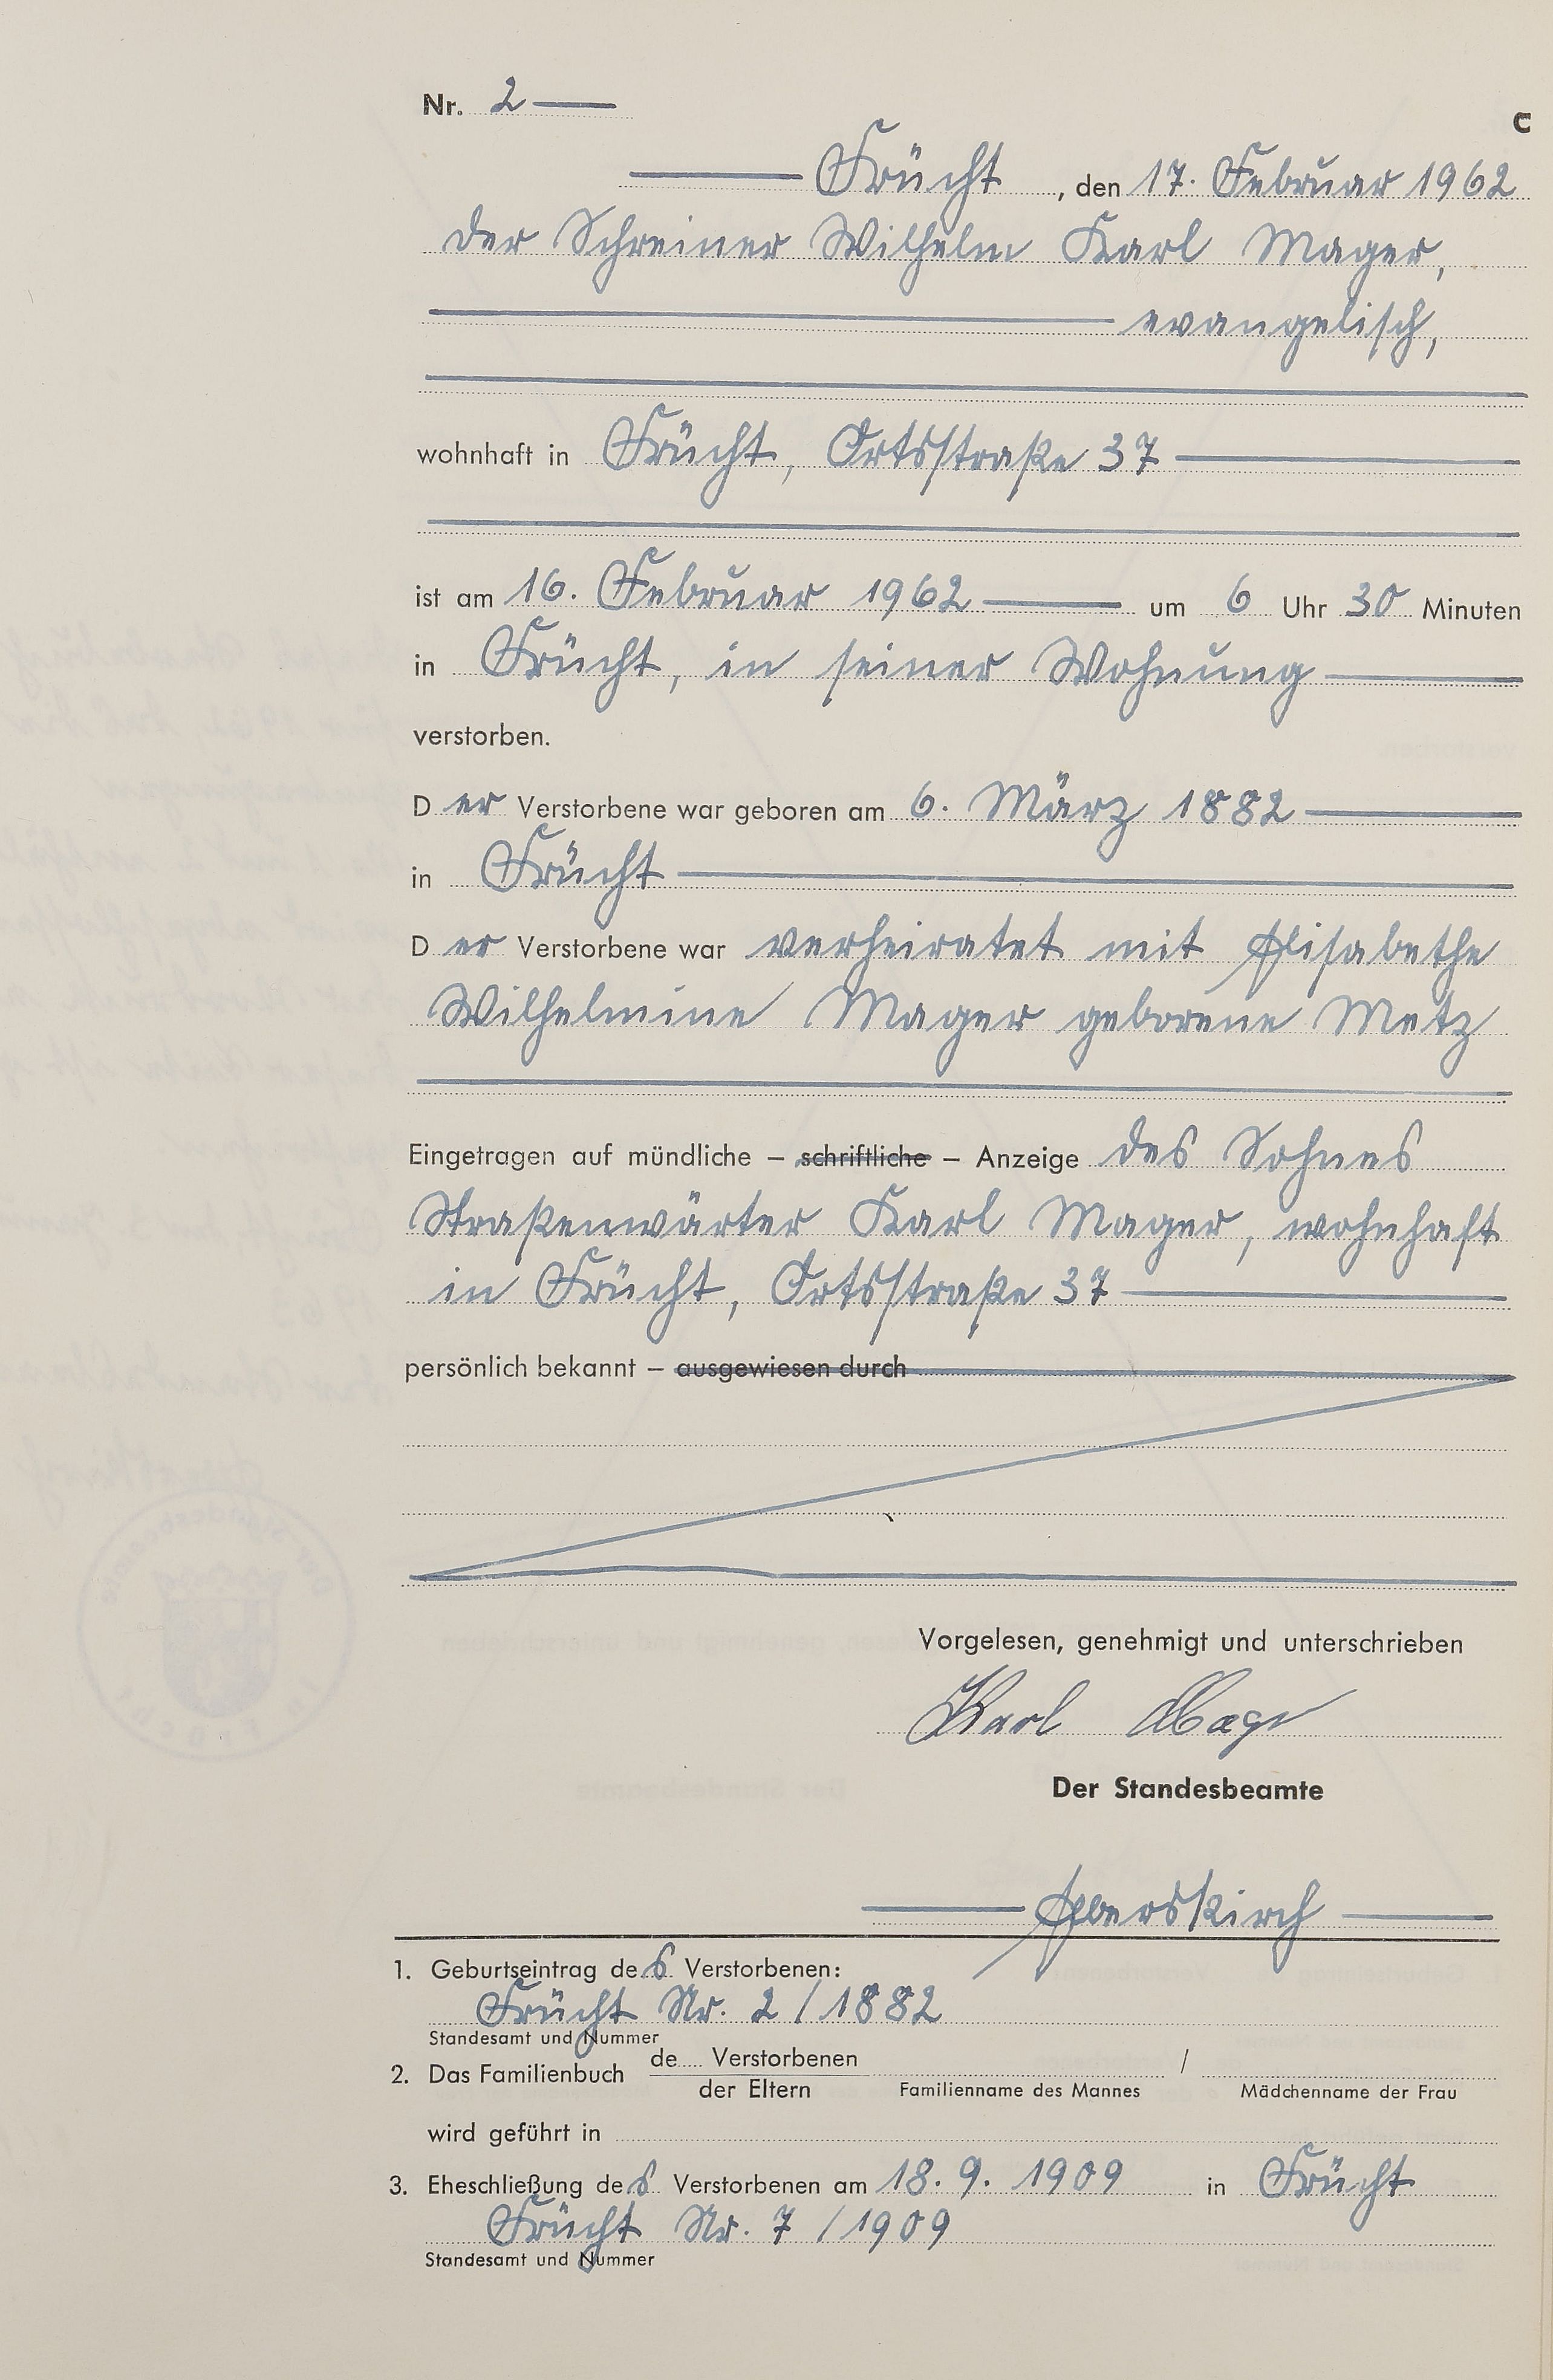 Nr. 2
C
Frücht, den 17. Februar 1962
Der Schreiner Wilhelm Karl Mager,
evangelisch,
wohnhaft in Frücht, Ortsstraße 37
ist am 16. Februar 1962 um 6 Uhr 30 Minuten
in Frücht, in seiner Wohnung
verstorben.
Der Verstorbene war geboren am 6. März 1882
in Frücht
Der Verstorbene war verheiratet mit Elisabethe
Wilhelmine Mager geborene Metz
Eingetragen auf mündliche – schriftliche – Anzeige des Sohnes
Straßenwärter Karl Mager, wohnhaft
in Frücht, Ortsstraße 37
persönlich bekannt – ausgewiesen durch
Vorgelesen, genehmigt und unterschrieben
Karl Mager
Der Standesbeamte
1. Geburtseintrag des Verstorbenen:
Frücht Nr. 2 / 1882
Standesamt und Nummer
2. Das Familienbuch de.... Verstorbenen /
der Eltern Familienname des Mannes Mädchenname der Frau
wird geführt in
3. Eheschließung des Verstorbenen am 18. 9. 1909 in Frücht
Frücht Nr. 7 / 1909
Standesamt und Nummer